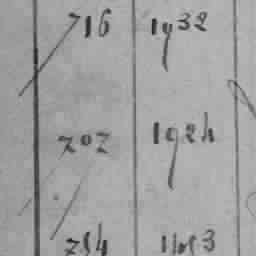 716 1932
702 1924
754